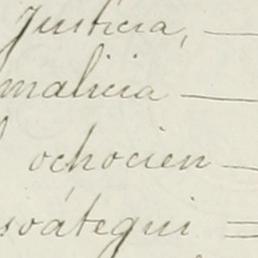 Justicia,
malicia
ochocien
soátegui